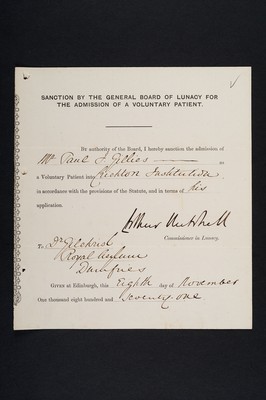 SANCTION BY THE GENERAL BOARD OF LUNACY FOR
THE ADMISSION OF A VOLUNTARY PATIENT.
By authority of the Board, I hereby sanction the admission of
Mr Paul J Gellios as
a Voluntary Patient into Crichton Institution
in accordance with the provisions of the Statute, and in terms of his
application.
Arthur Mitchell
Commissioner in Lunacy.
To Dr Gilchrist
Royal Asylum
Dumfries
GIVEN at Edinburgh, this Eighth day of November
One thousand eight hundred and seventy-one